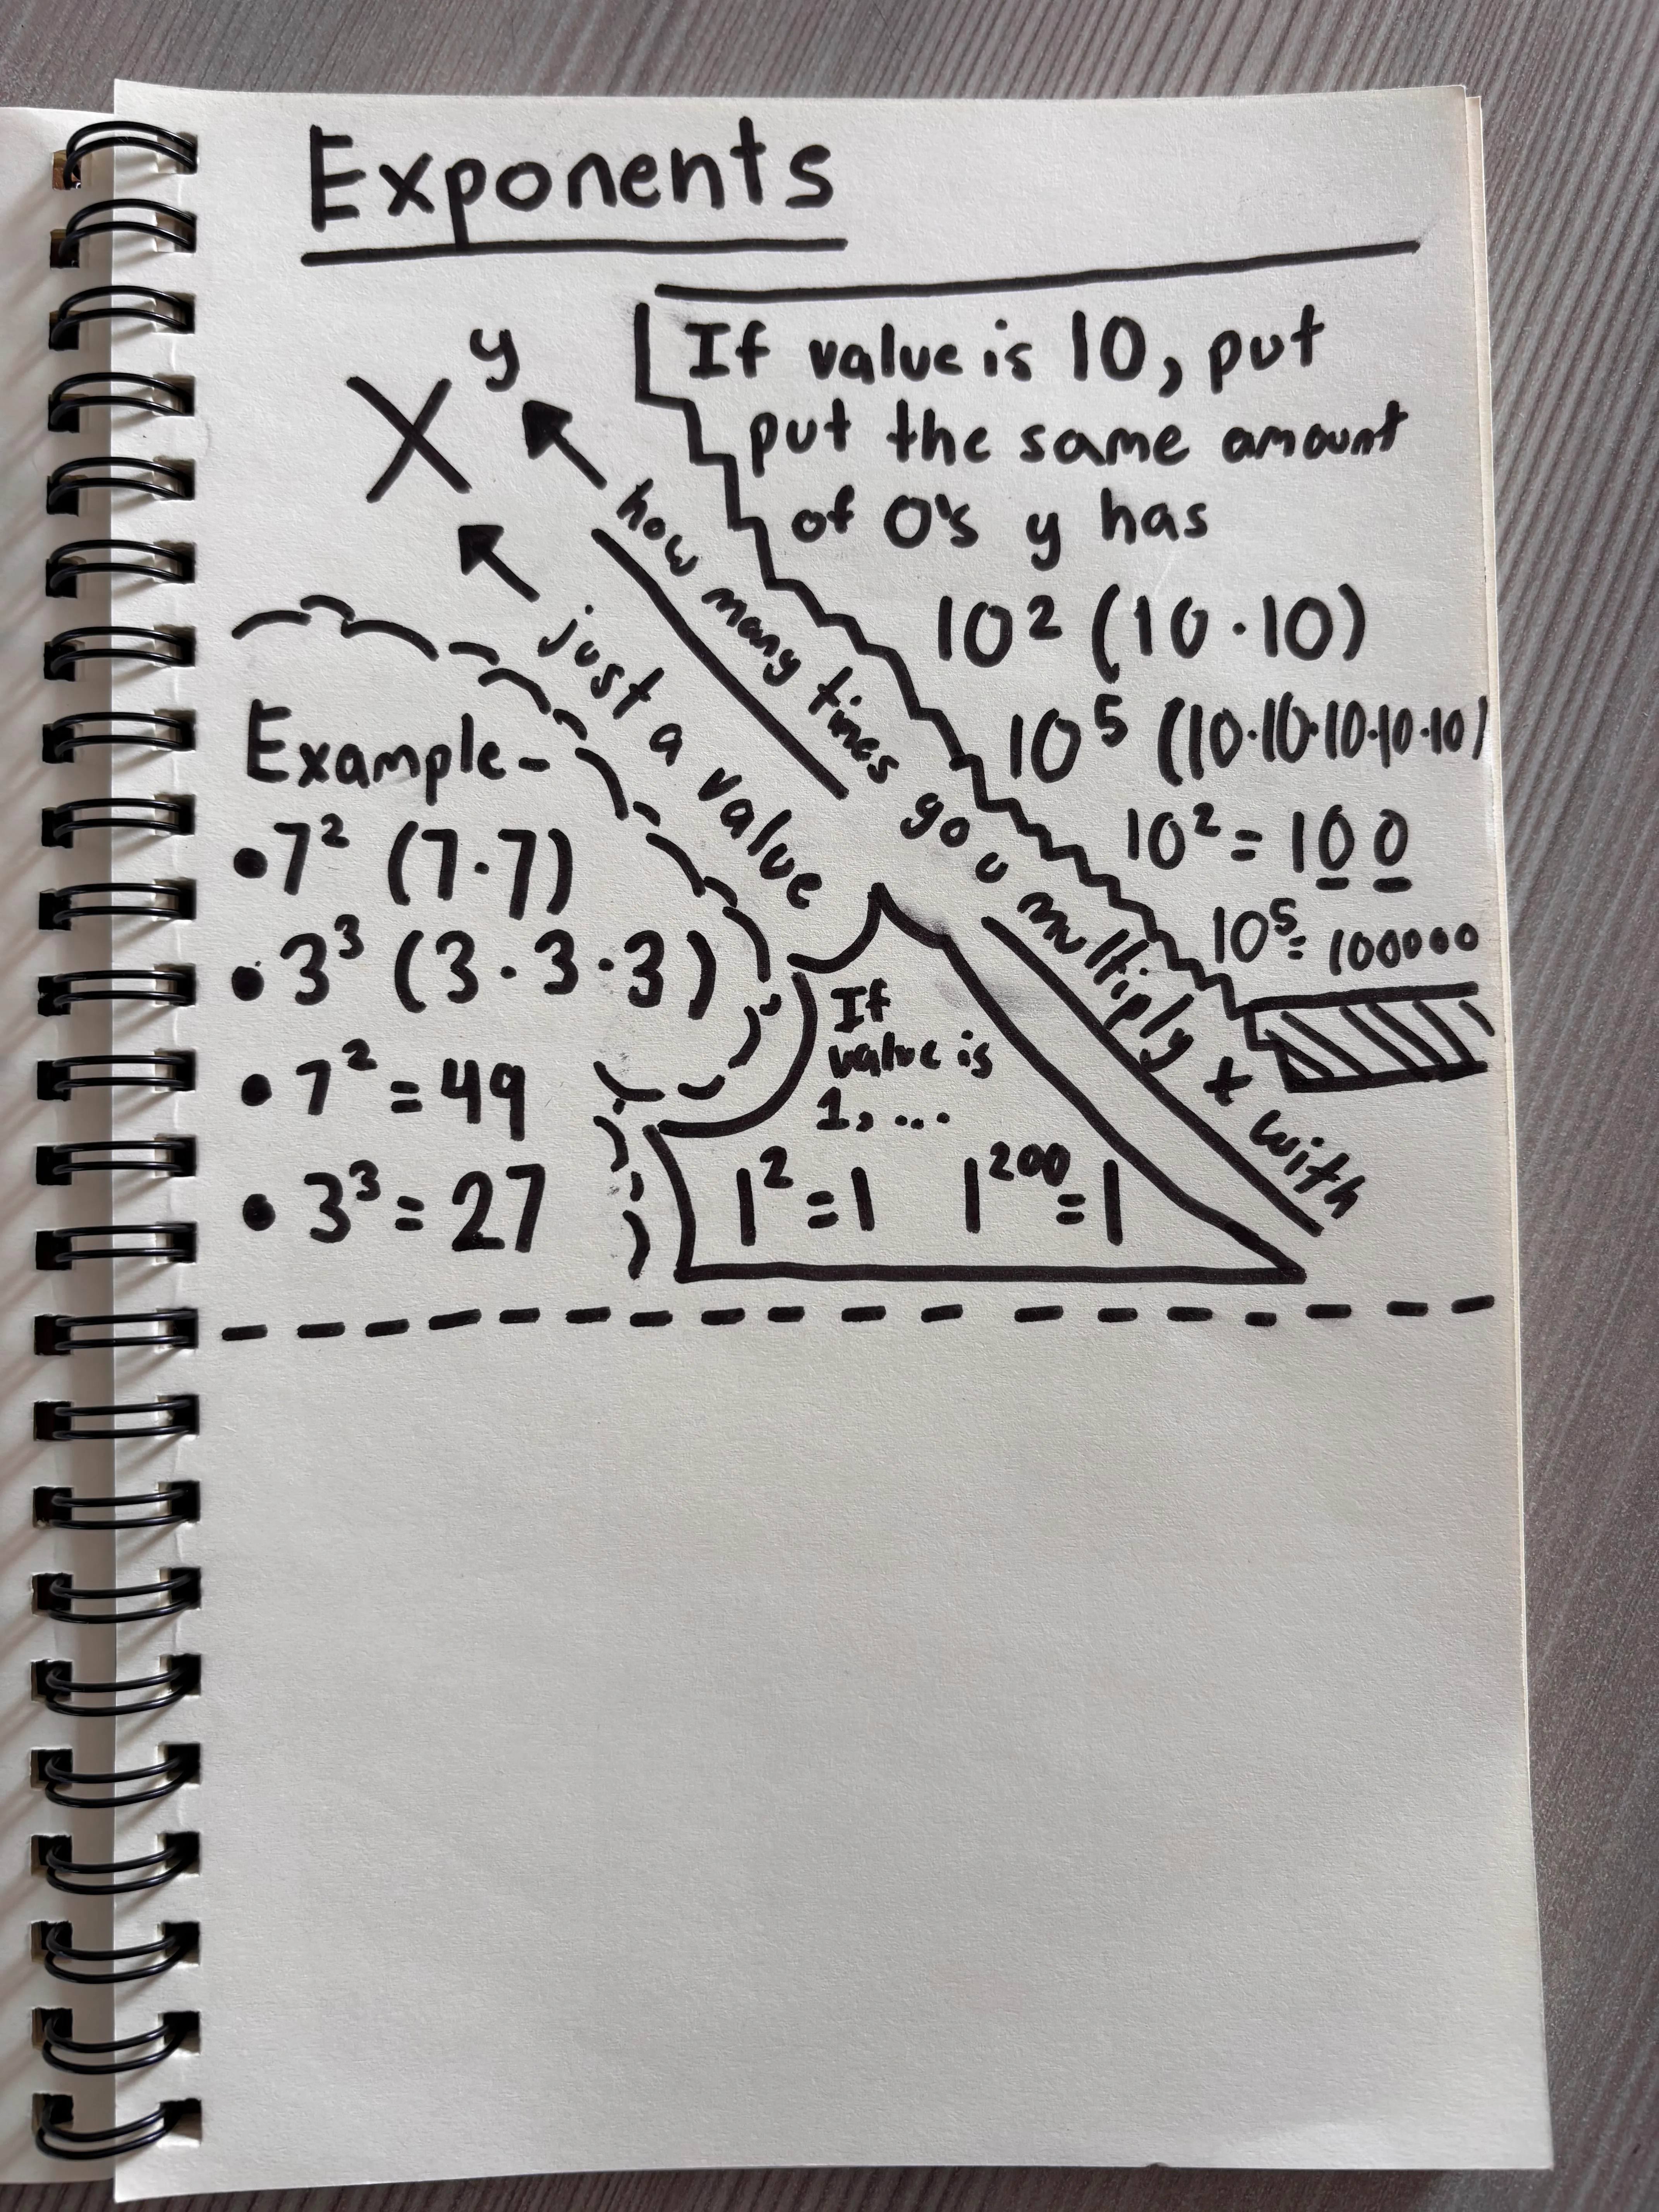 Exponents
x^y
how many times you multiply x with
just a value
If value is 10, put
put the same amount
of 0's y has
10² (10·10)
10⁵ (10·10·10·10·10)
10² = 100
10⁵= 100000
Example-
•7² (7·7)
•3³ (3·3·3)
•7² = 49
•3³ = 27
If
value is
1, ...
1²=1 1²⁰⁰=1